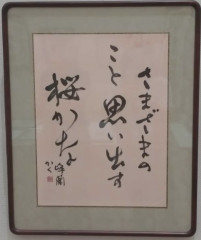 さまざまの
こと思い出す
桜かな